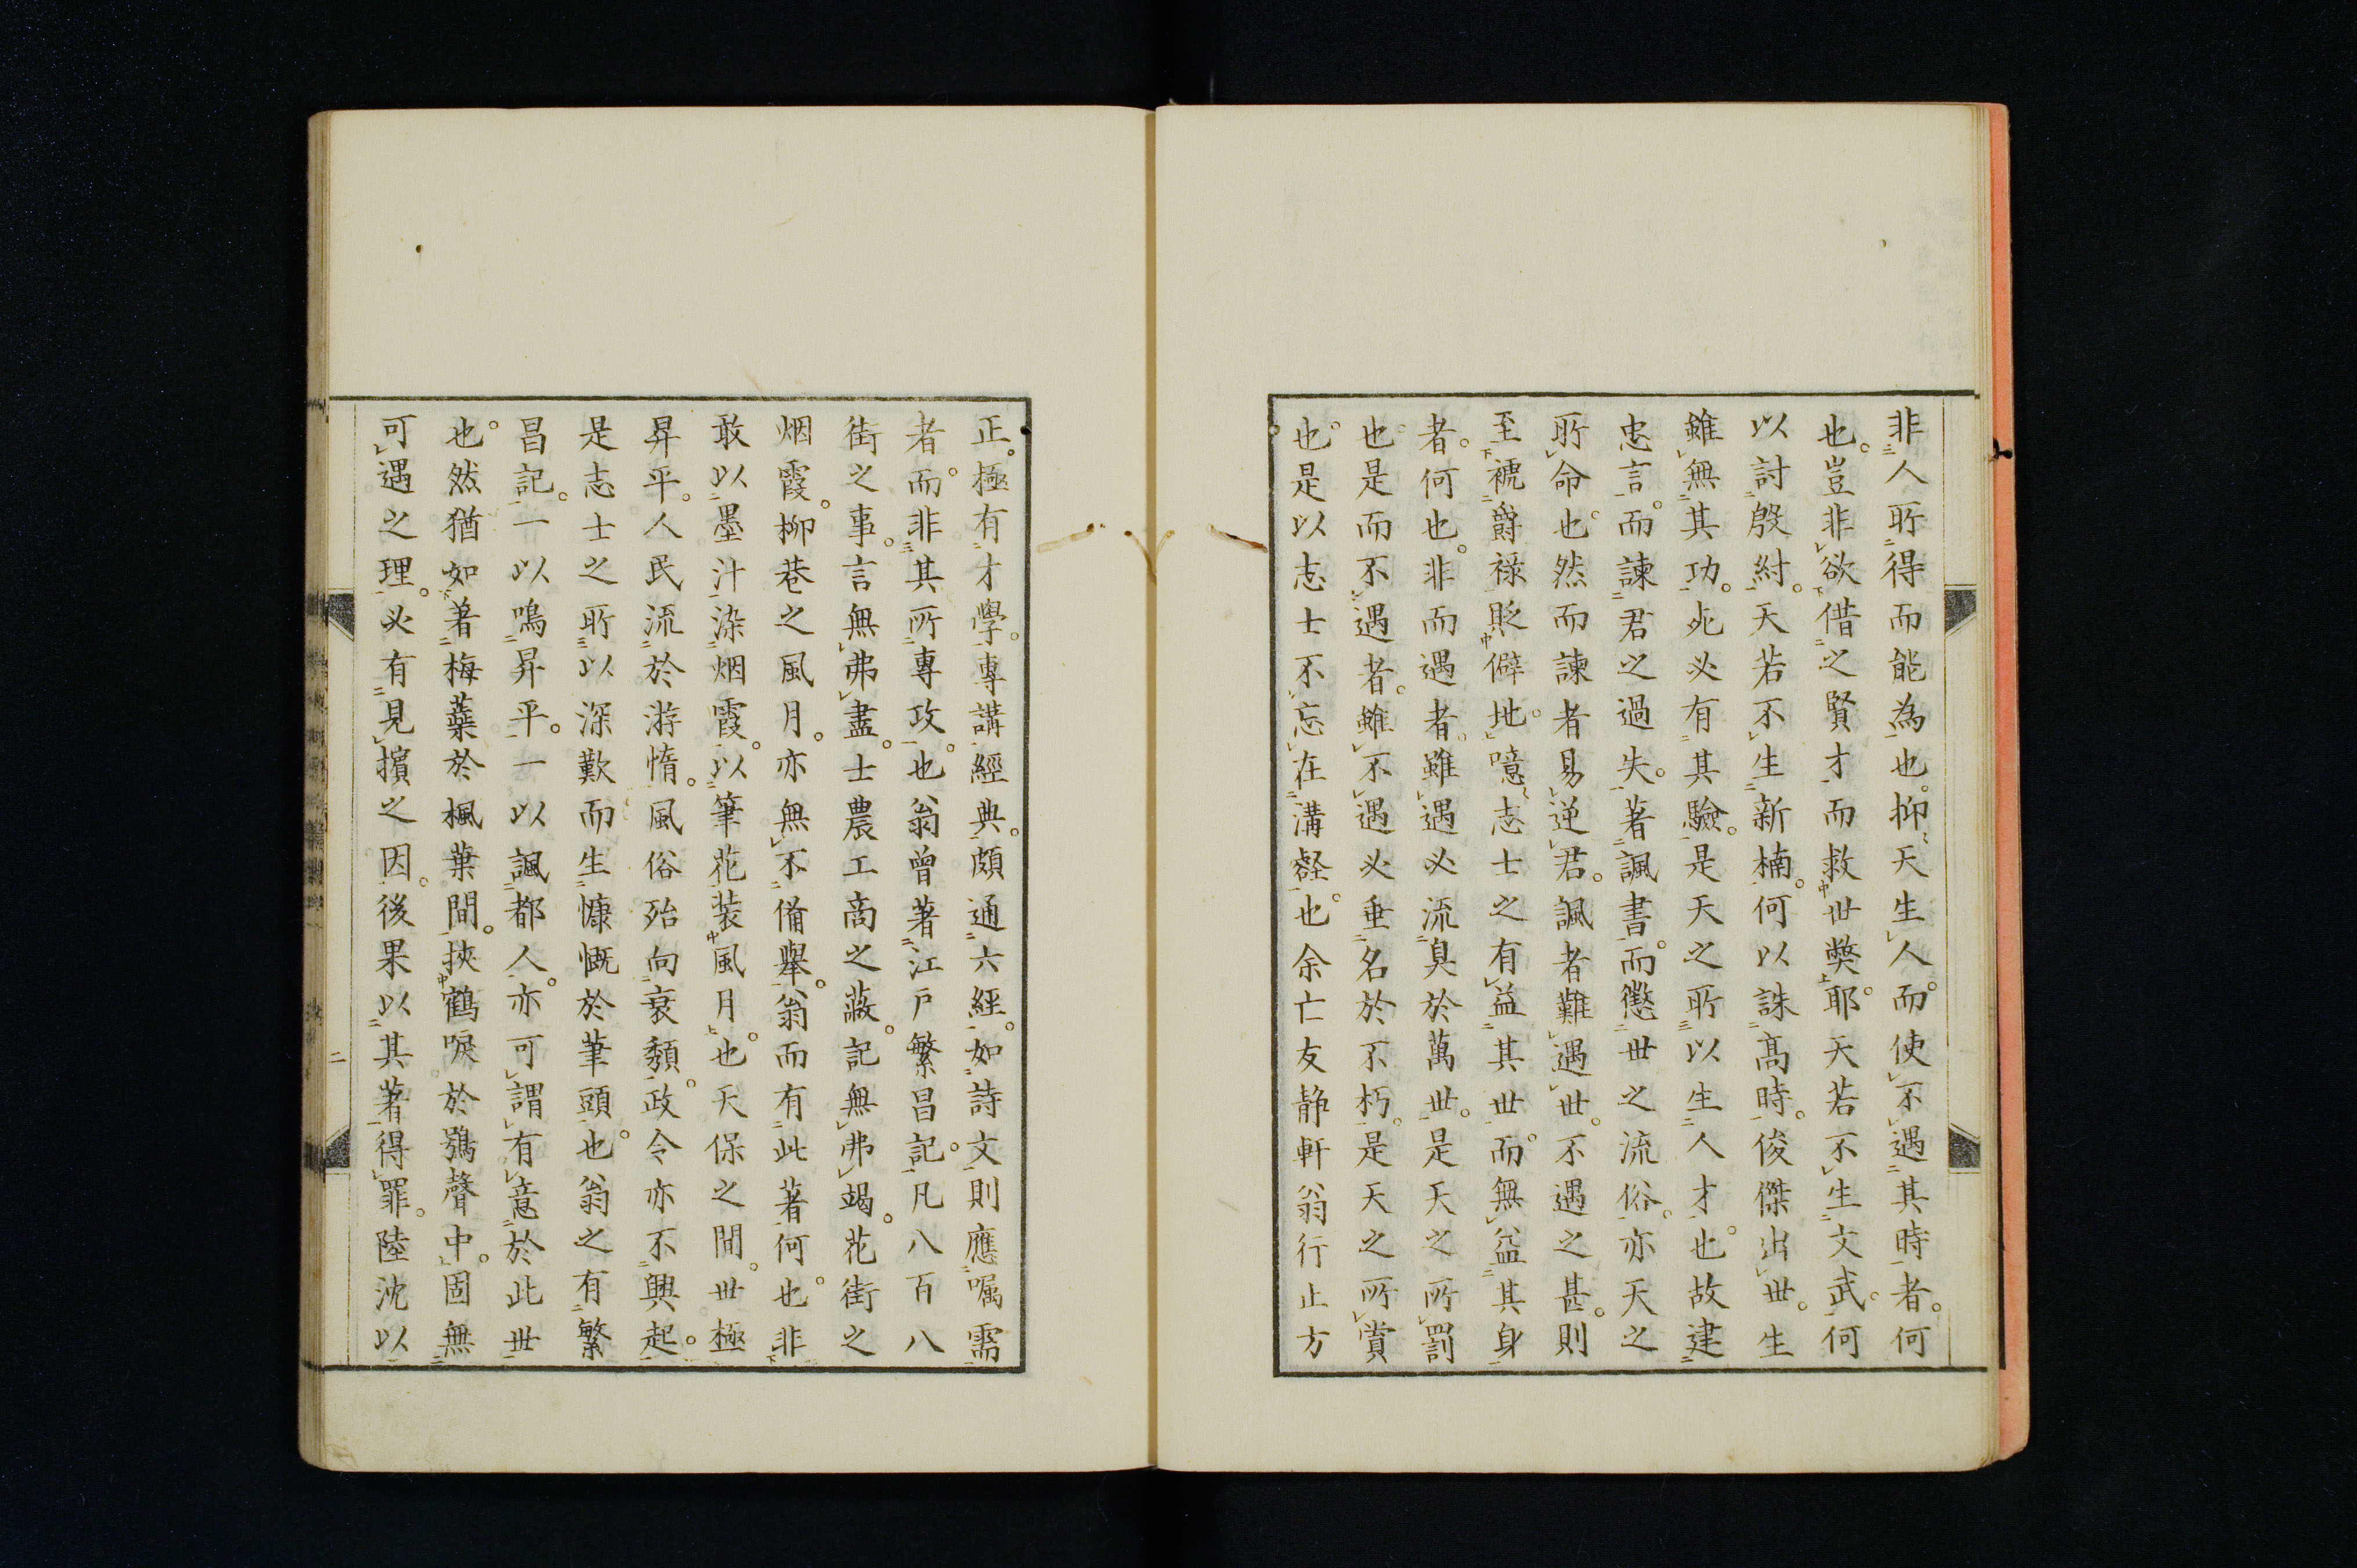 非人所得而能為也。抑天生人而使不遇其時者。何
也。豈非欲借之賢才而救世弊耶。天若不生文武。何
以討殷紂。天若不生新楠。何以誅高時。俊傑出世。生
雖無其功。死必有其驗。是天之所以生人才也。故建
忠言。而諫君之過失。著諷書。而懲世之流俗。亦天之
所命也。然而諫者易逆君。諷者難遇世。不遇之甚。則
至褫爵祿貶僻地。噫志士之有益其世。而無益其身
者。何也。非而遇者。雖遇必流臭於萬世。是天之所罰
也。是而不遇者。雖不遇必垂名於不朽。是天之所賞
也。是以志士不忘在溝壑也。余亡友静軒翁行止方
正。極有才學。專講經典。頗通六經。如詩文則應囑需
者。而非其所專攻也。翁曾著江戶繁昌記。凡八百八
街之事。言無弗盡。士農工商之蔽。記無弗竭。花街之
烟霞。柳巷之風月。亦無不備舉。翁而有此著何也。非
敢以墨汁染烟霞。以筆花装風月也。天保之間。世極
昇平。人民流於游惰。風俗殆向衰頽。政令亦不興起。
是志士之所以深歎而生慷慨於筆頭也。翁之有繁
昌記。一以鳴昇平。一以諷都人。亦可謂有意於此世
也。然猶如著梅蘂於楓葉間。挾鶴唳於鴉聲中。固無
可遇之理。必有見擯之因。後果以其著得罪。陸沈以
二